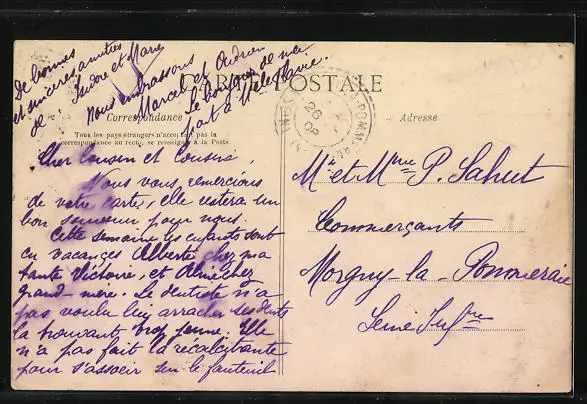 De bonnes
et sincères amitiés
de Isidore et Marie
Nous embrassons
Marcel et Adrien
Le de ma
fait à Mlle
CARTE POSTALE
Correspondance
Tous les pays étrangers n'acceptant pas la
correspondance au recto, se renseigner à la Poste
Cher Cousin et Cousine,
Nous vous remercions
de votre carte, elle restera un
bon souvenir pour nous.
Cette semaine les enfants sont
en vacances Alberte chez ma
tante Victoire, et chez
grand-mère. Le dentiste n'a
pas voulu lui arracher ses dents
la trouvant trop jeune. Elle
n'a pas fait la récalcitrante
pour s'asseoir sur le fauteuil
Adresse
Mr et Mme P. Sahut
Commerçants
Morgny-la-Pommeraie
Seine Infre